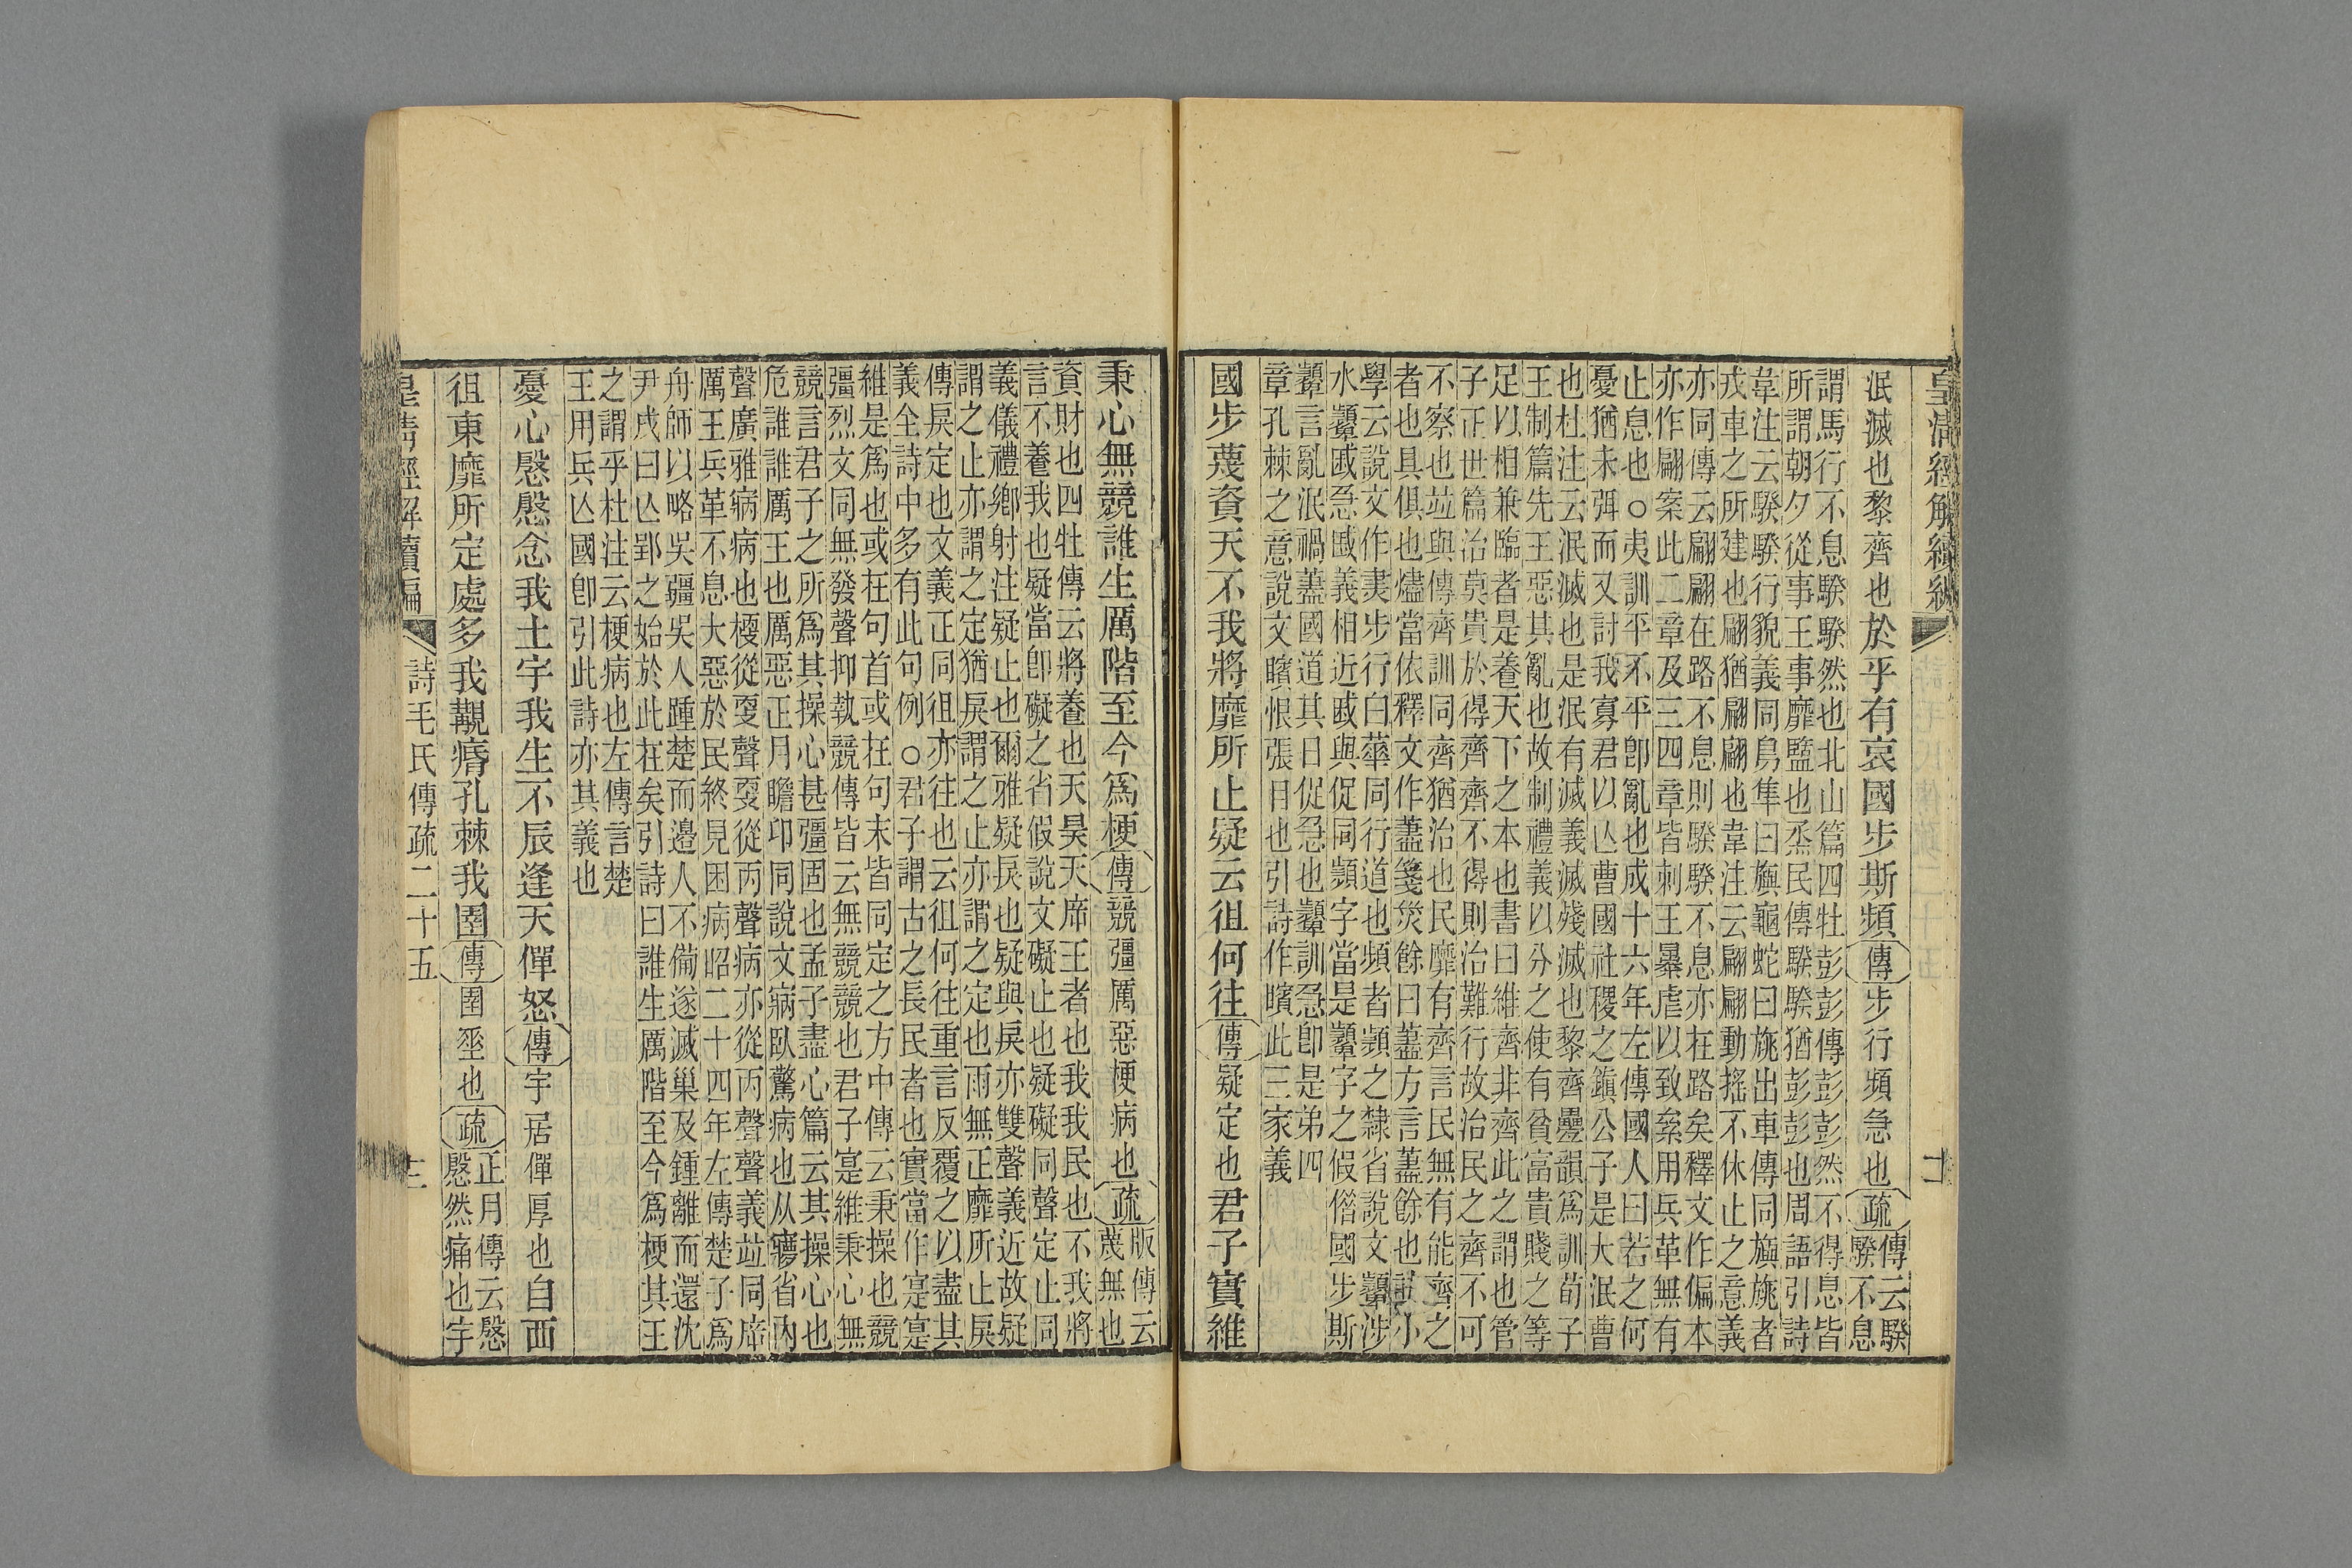 皇清經解續編
泯滅也黎齊也於乎有哀國步斯頻傳步行頻急也疏傳云騤
騤不息
謂馬行不息騤騤然也北山篇四牡彭彭傳彭彭然不得息皆
所謂朝夕從事王事靡盬也烝民傳騤騤猶彭彭也周語引詩
韋注云騤騤行貌義同鳥隼曰旟龜蛇曰旐出車傳同旟旐者
戎車之所建也翩猶翩翩也韋注云翩翩動搖不休止之意義
亦同傳云翩翩在路不息則騤騤不息亦在路矣釋文作偏本
亦作翩案此二章及三四章皆刺王暴虐以致案用兵革無有
止息也○夷訓平不平卽亂也成十六年左傳國人曰若之何
憂猶未弭而又討我寡君以亾曹國社稷之鎭公子是大泯曹
也杜注云泯滅也是泯有滅義滅殘滅也黎齊疊韻爲訓荀子
王制篇先王惡其亂也故制禮義以分之使有貧富貴賤之等
足以相兼臨者是養天下之本也書曰維齊非齊此之謂也管
子正世篇治莫貴於得齊齊不得則治難行故治民之齊不可
不察也竝與傳齊訓同齊猶治也民靡有齊言民無有能齊之
者也具俱也燼當依釋文作藎箋烖餘曰藎方言藎餘也寅小
學云說文作㶳步行曰蓽同行道也頻者顰之隸省說文顰涉
水顰戚急戚義相近戚與促同顰字當是顰字之假借國步斯
顰言亂泯禍蓋國道其日促急也顰訓急卽是弟四
章孔棘之意說文矉恨張目也引詩作矉此三家義
國步蔑資天不我將靡所止疑云徂何往傳疑定也君子實維
秉心無競誰生厲階至今爲梗傳競彊厲惡梗病也疏版傳云
蔑無也
資財也四牡傳云將養也天昊天席王者也我我民也不我將
言不養我也疑當卽礙之省假說文礙止也疑礙同聲定止同
義儀禮鄉射注疑止也爾雅疑戾也疑與戾亦雙聲義近故疑
謂之止亦謂之定猶戾謂之止亦謂之定也雨無正靡所止戾
傳戾定也文義正同徂亦往也云徂何往重言反覆之以盡其
義全詩中多有此句例○君子謂古之長民者也實當作寔寔
維是爲也或在句首或在句末皆同定之方中傳云秉操也競
彊烈文同無發聲抑執競傳皆云無競競也君子寔維秉心無
競言君子之所爲其操心甚彊固也孟子盡心篇云其操心也
危誰誰厲王也厲惡正月瞻卬同說文㾛臥驚病也从㝱省丙
聲廣雅㾛病也梗從㪅聲㪅從丙聲病亦從丙聲聲義竝同席
厲王兵革不息大惡於民終見困病昭二十四年左傳楚子爲
舟師以略吳疆吳人踵楚而邊人不備遂滅巢及鍾離而還沈
尹戌曰亾郢之始於此在矣引詩曰誰生厲階至今爲梗其王
之謂乎杜注云梗病也左傳言楚
王用兵亾國卽引此詩亦其義也
憂心慇慇念我土宇我生不辰逢天僤怒傳宇居僤厚也自西
徂東靡所定處多我覯痻孔棘我圉傳圉垂也疏正月傳云慇
慇然痛也宇
皇清經解續編　詩毛氏傳疏二十五